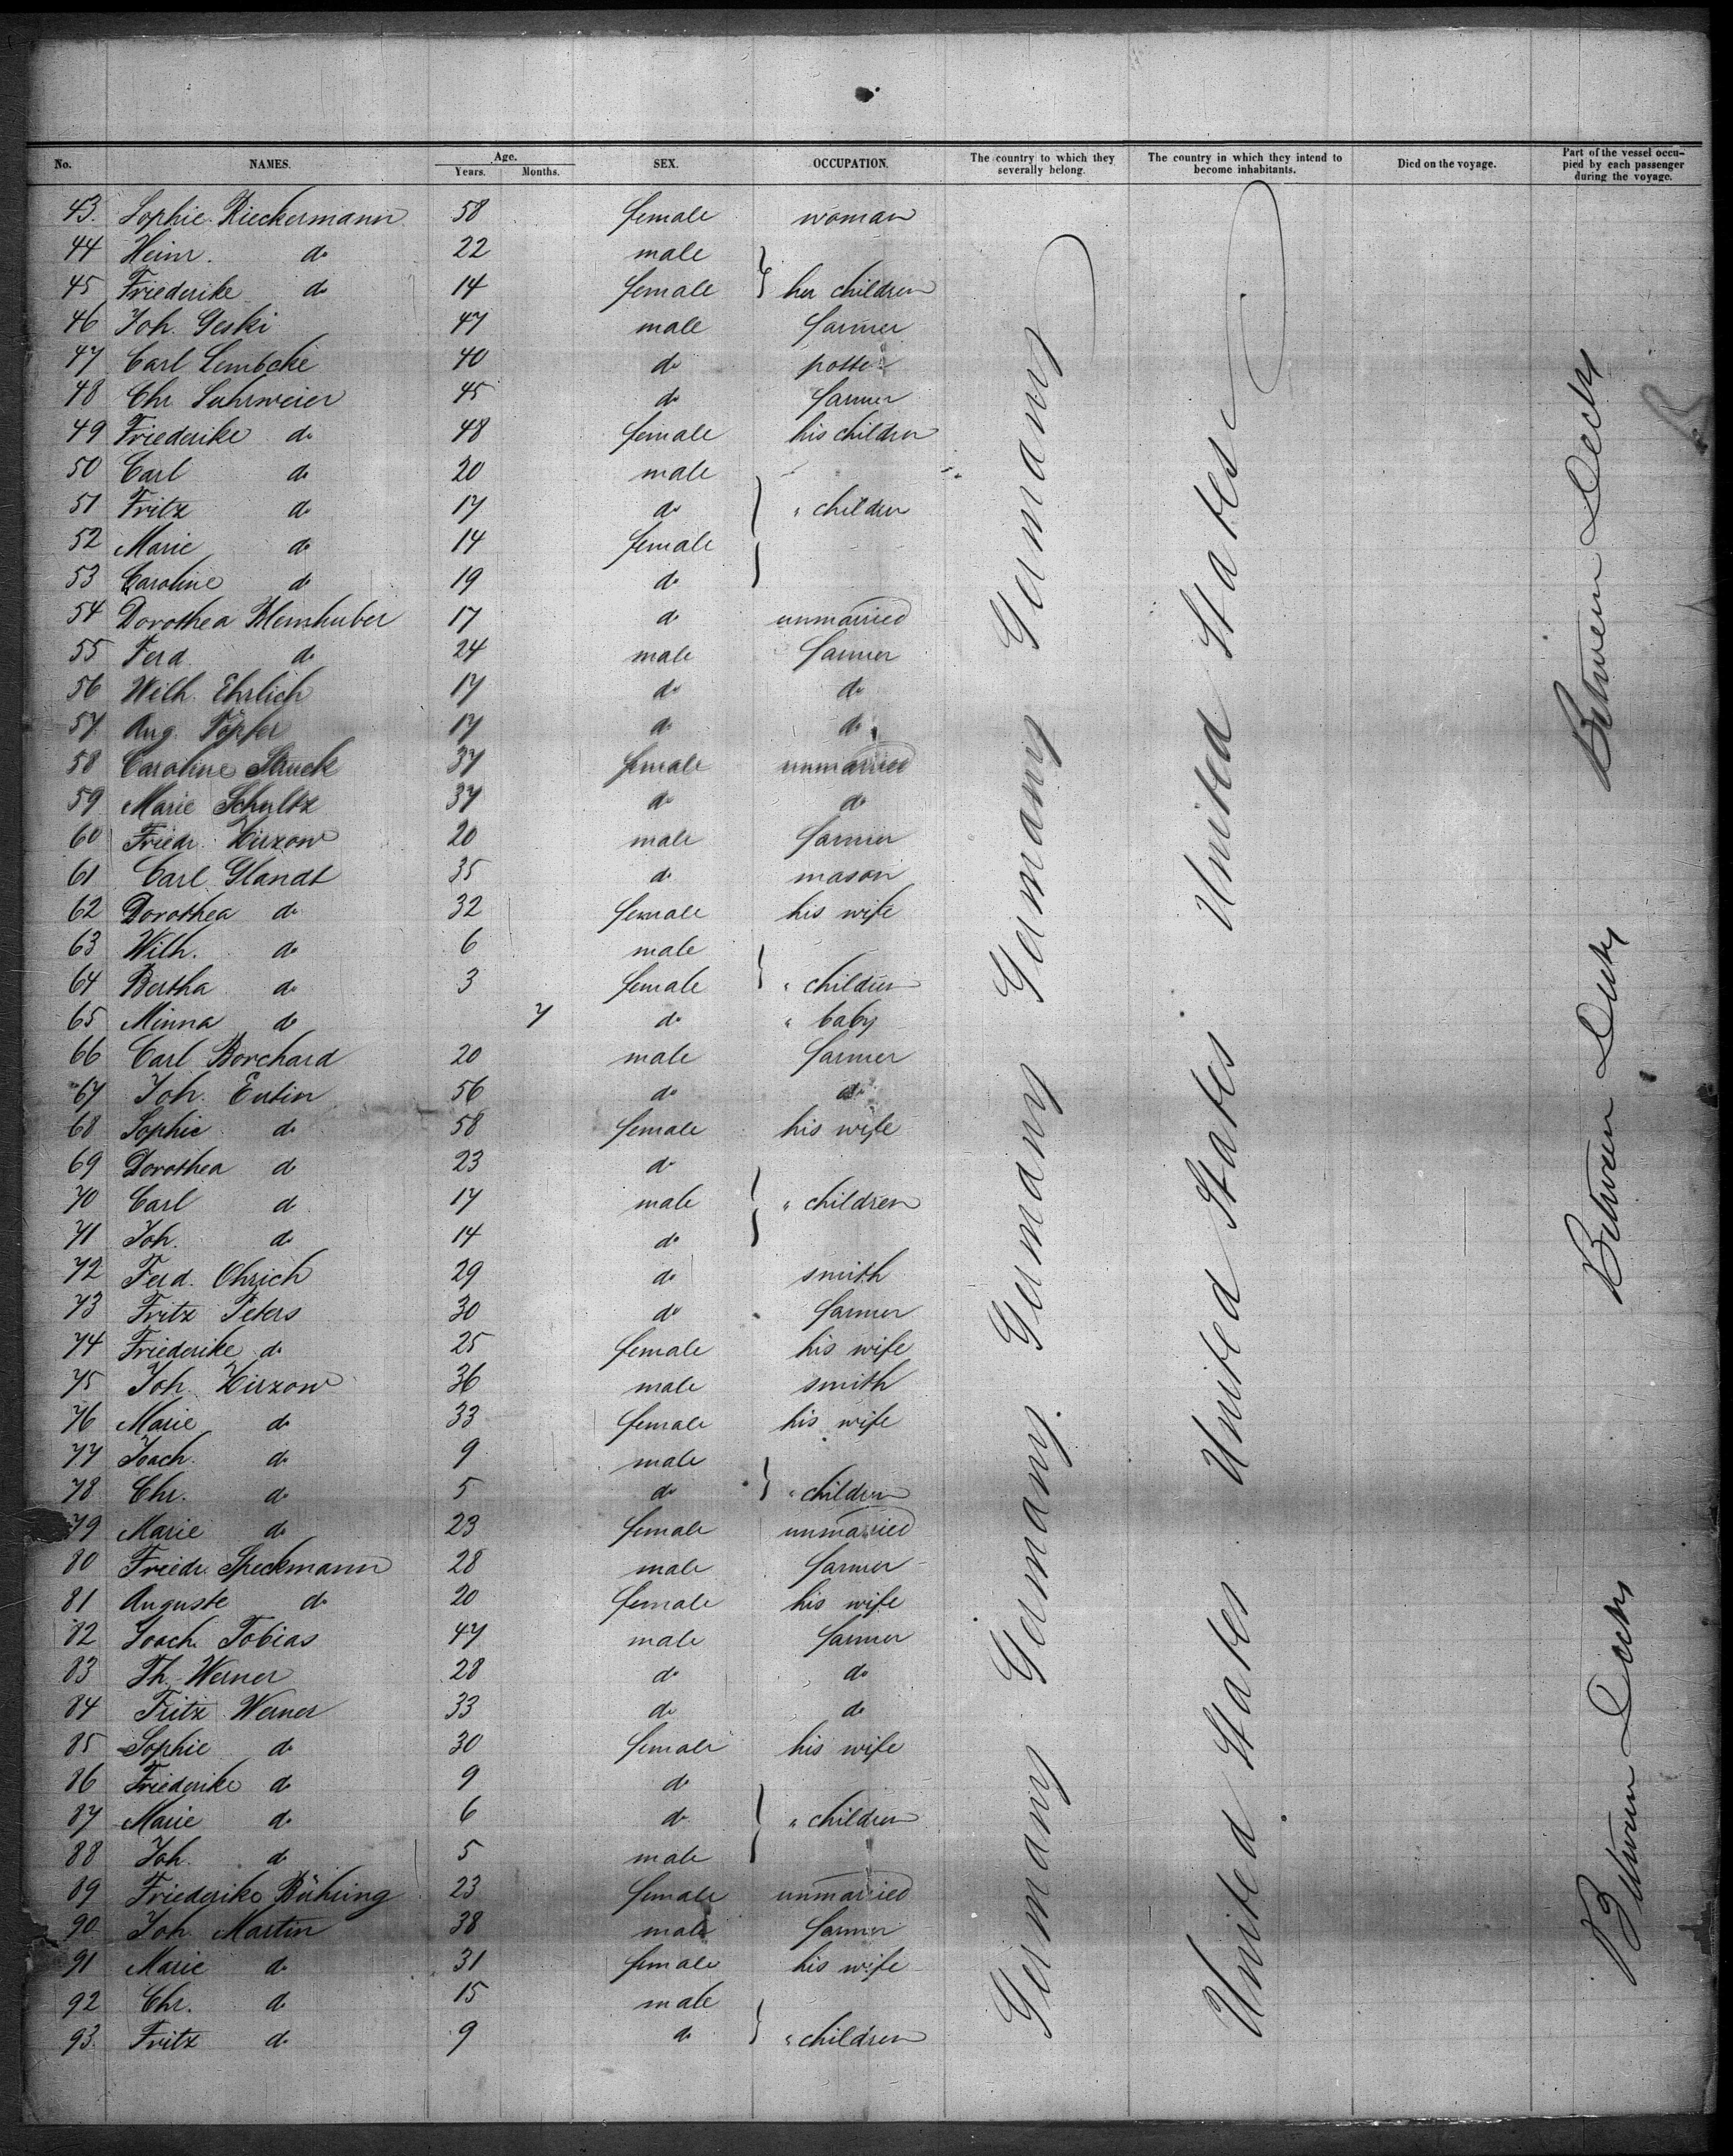 No. NAMES. Age. Years. Months. SEX. OCCUPATION. The country to which they severally belong. The country in which they intend to become inhabitants. Died on the voyage. Part of the vessel occupied by each passenger during the voyage.
43. Sophie Rieckermann 58 female woman
44 Heinr. do 22 male
45 Friederike do 14 female } her children
46 Joh. Geski 47 male farmer
47 Carl Lembcke 40 do potter
48 Chr. Suhrweier 45 do farmer
49 Friederike do 48 female his children
50 Carl do 20 male
51 Fritz do 17 do } " children
52 Marie do 14 female
53 Caroline do 19 do
54 Dorothea Blemhuber 17 do unmarried
55 Ferd. do 24 male farmer
56 Wilh. Ehrlich 17 do do
57 Aug. Töpfer 17 do do
58 Caroline Struck 37 female unmarried
59 Marie Schultz 37 do do
60 Friedr. Kirzow 20 male farmer
61 Carl Glandt 35 do mason
62 Dorothea do 32 female his wife
63 Wilh. do 6 male
64 Bertha do 3 female } " children
65 Minna do 7 do " baby
66 Carl Borchard 20 male farmer
67 Joh. Eutin 56 do do
68 Sophie do 58 female his wife
69 Dorothea do 23 do
70 Carl do 17 male } " children
71 Joh. do 14 do
72 Ferd. Ohrich 29 do smith
73 Fritz Peters 30 do farmer
74 Friederike do 25 female his wife
75 Joh. Kirzow 36 male smith
76 Marie do 33 female his wife
77 Joach. do 9 male
78 Chr. do 5 do } " children
79 Marie do 23 female unmarried
80 Friedr. Speckmann 28 male farmer
81 Auguste do 20 female his wife
82 Joach. Tobias 47 male farmer
83 Th. Werner 28 do do
84 Fritz Werner 33 do do
85 Sophie do 30 female his wife
86 Friederike do 9 do
87 Marie do 6 do } " children
88 Joh. do 5 male
89 Friederike Bühring 23 female unmarried
90 Joh. Martin 38 male farmer
91 Marie do 31 female his wife
92 Chr. do 15 male
93. Fritz do 9 do } " children
Germany Germany Germany Germany Germany
United States United States United States
Between Decks Between Decks Between Decks